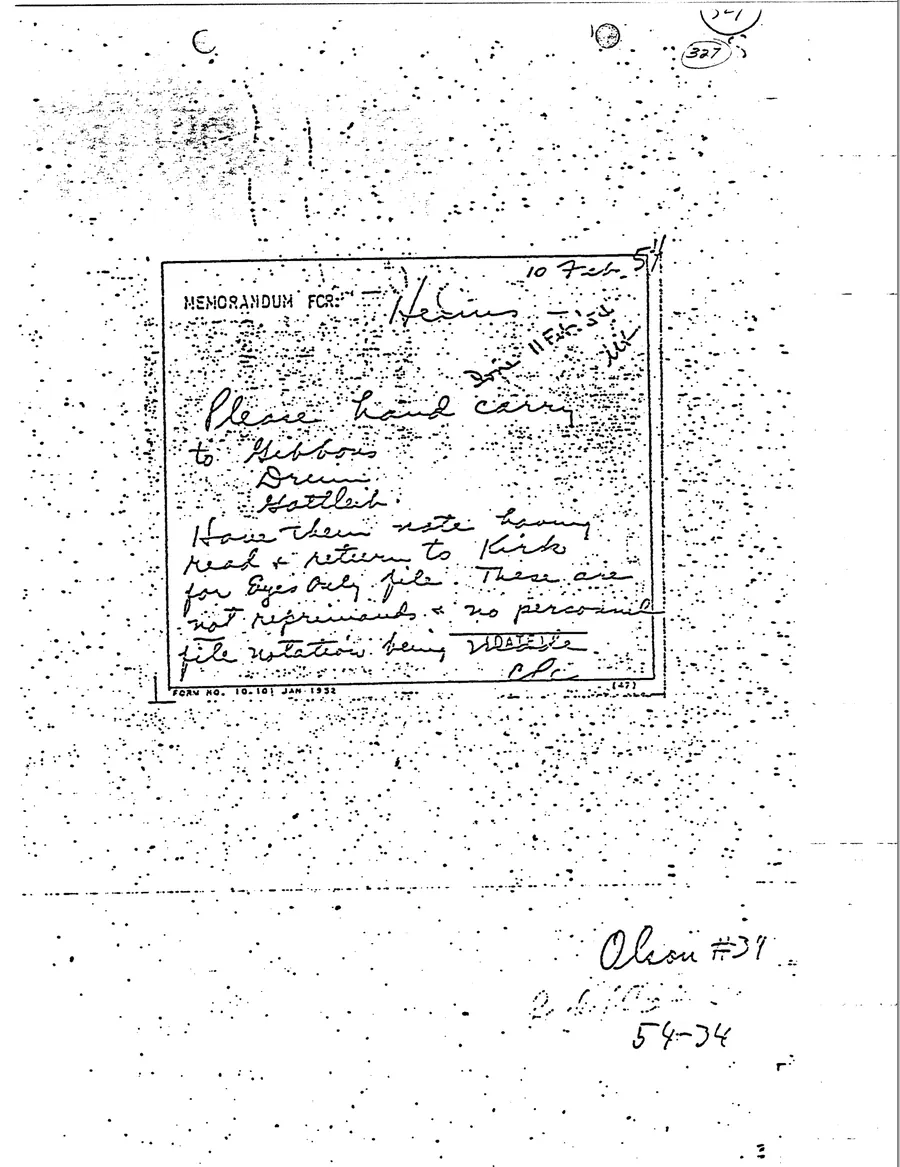 327
10 Feb. 54
MEMORANDUM FOR:
Helms —
Done 11 Feb. '54
Please hand carry
to Gibbons
Drum
Gottlieb.
Have them note having
read & return to Kirk
for Eyes Only file. These are
not reprimands & no personnel
file notation being made.
(DATE)
FORM NO. 10.101 JAN 1952
(47)
Olson #39
54-34